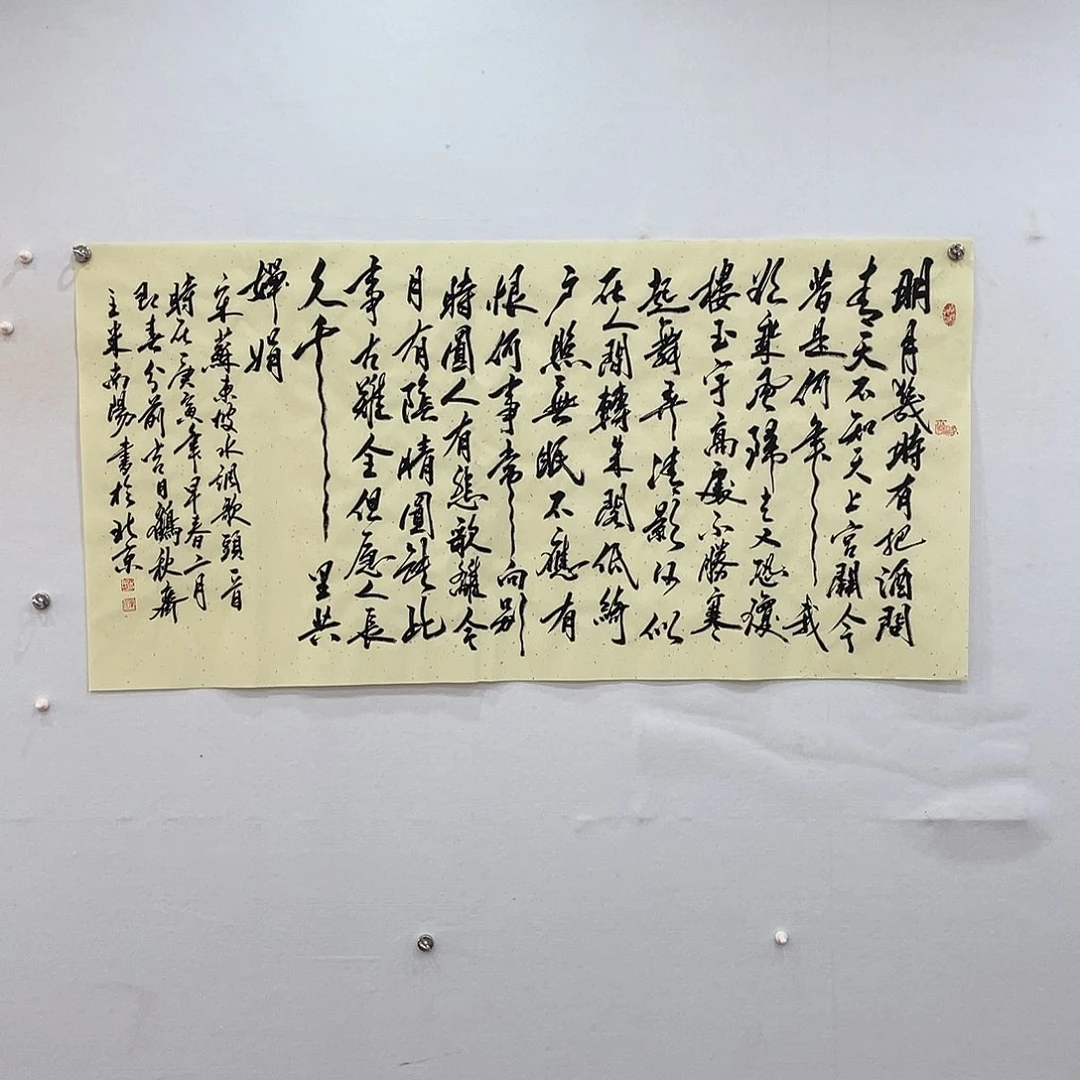 明月幾時有把酒問
青天不知天上宮闕今
昔是何年我
欲乘風歸去又恐瓊
樓玉宇高處不勝寒
起舞弄清影何似
在人間轉朱閣低綺
户照無眠不應有
恨何事常向別
時圓人有悲歡離合
月有陰晴圓缺此
事古難全但願人長
久千里共
嬋娟
宋蘇東坡水調歌頭一首
時在庚寅年早春二月
即春分前吉日鶴秋齋
主米南陽書於北京